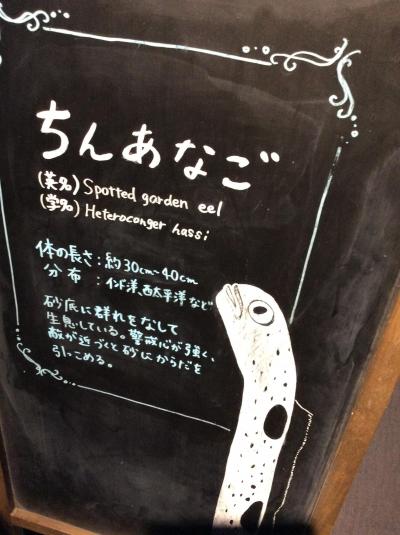 ちんあなご
(英名) Spotted garden eel
(学名) Heteroconger hassi
体の長さ：約30cm~40cm
分布：インド洋、西太平洋など
砂底に群れをなして
生息している。警戒心が強く、
敵が近づくと砂にからだを
引っこめる。